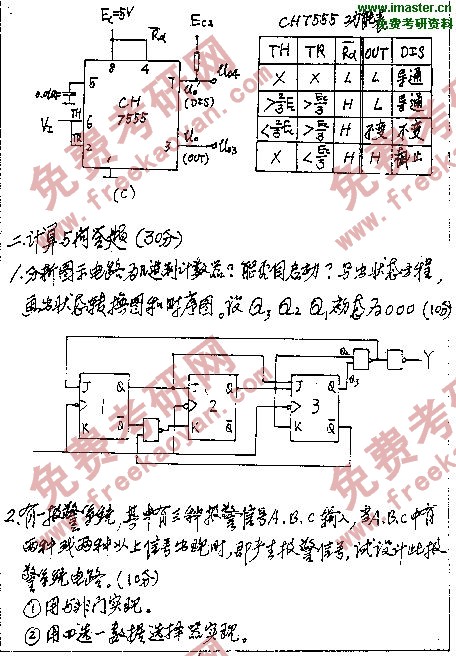 www.imaster.cn
免费考研资料
E_C=5V
R̄d
E_C2
CH7555 功能表
TH TR R̄d OUT DIS
X X L L 导通
>2/3Ec >Ec/3 H L 导通
<2/3Ec >Ec/3 H 不变 不变
X <Ec/3 H H 截止
8 4
0.01μ
5
7
Uo
Uo4
(DIS)
CH
7555
V_I
TH
6
TR
2
Uo
3
Uo3
(OUT)
1
(C)
免费考研网
www.freekaoyan.com
二.计算与问答题 (30分)
1.分析图示电路为几进制计数器?能否自启动?写出状态方程,
画出状态转换图和时序图。设Q3 Q2 Q1初态为000 (10分)
Q2
Q3
Y
J Q
1
K Q̄
J Q
2
K Q̄
J Q
3
K Q̄
免费考研网
www.freekaoyan.com
2.有一报警系统,其中有三种报警信号A.B.C输入,当A.B.C中有
两种或两种以上信号出现时,即产生报警信号,试设计此报
警系统电路。(10分)
①用与非门实现。
②用四选一数据选择器实现。